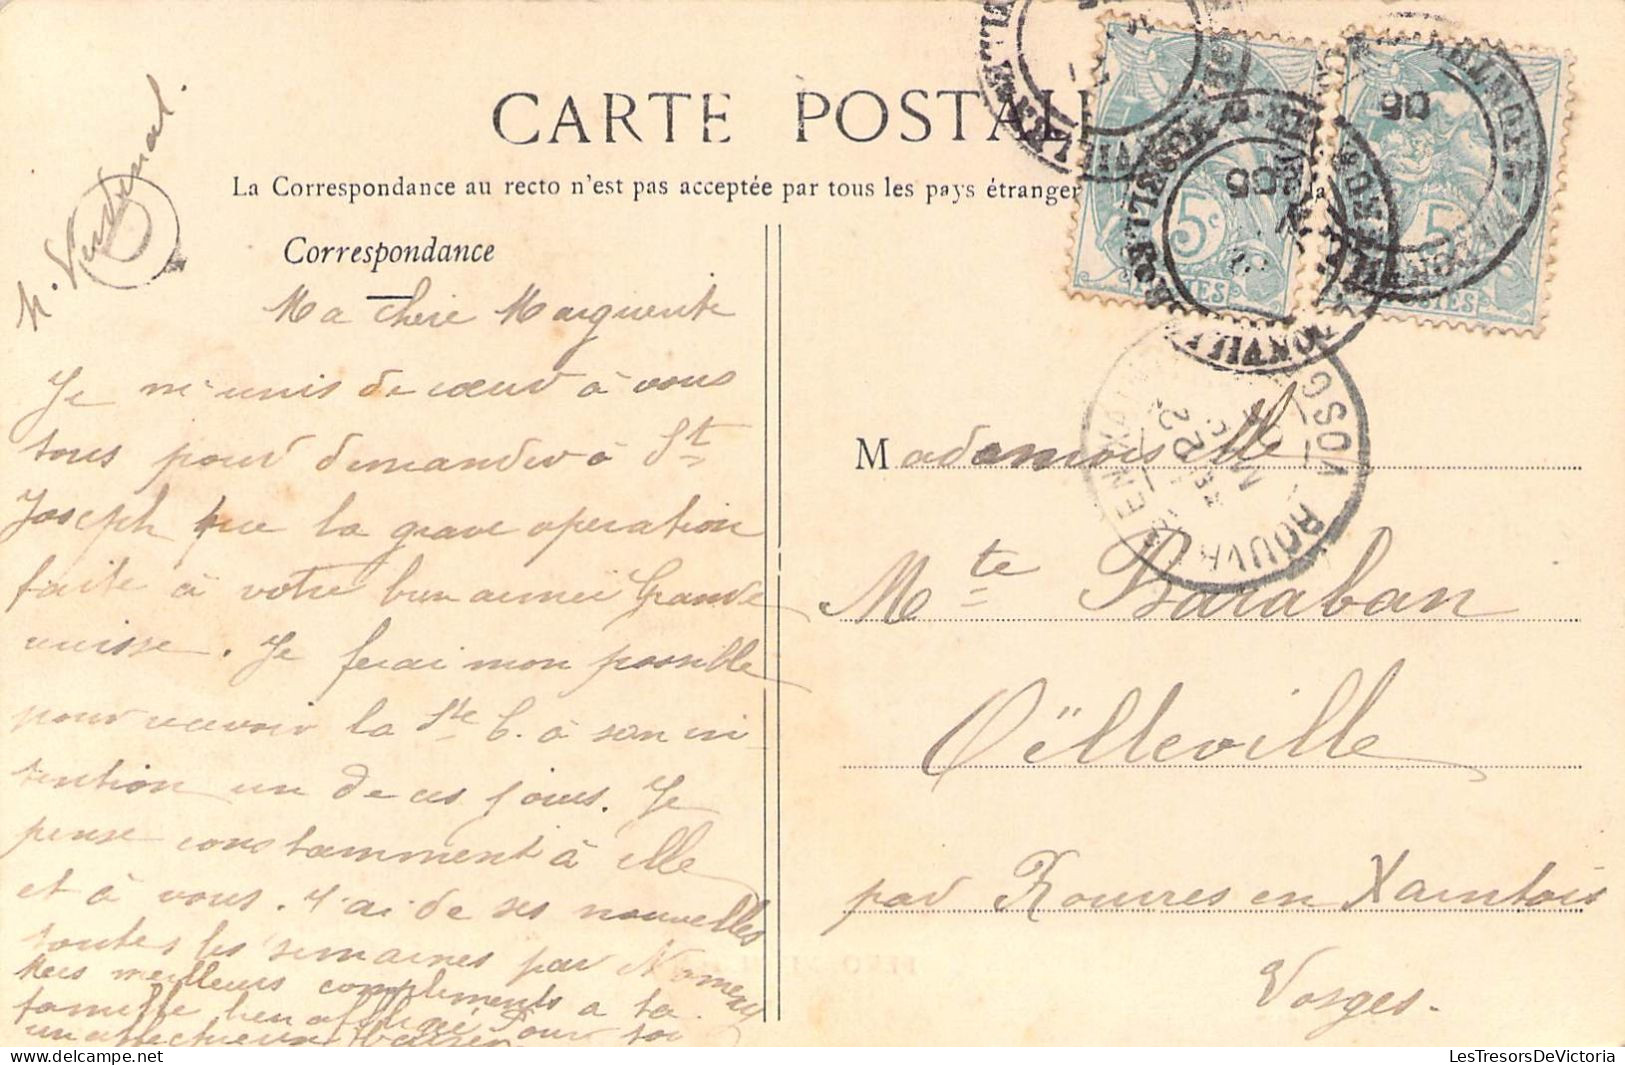 CARTE POSTALE
La Correspondance au recto n'est pas acceptée par tous les pays étranger
Correspondance
Ma chère Marguerite
Je m'unis de cœur à vous
tous pour demander à St
Joseph que la grave operation
faite à votre bien aimée Grande
uisse. Je ferai mon possible
pour recevoir la Ste C. à son in
tention un de ces jours. Je
pense constamment à elle
et à vous. J'ai de ses nouvelles
toutes les semaines par Nomexy
Mes meilleurs compliments a ta
famille bien affligée Pour toi
un affectueux baiser
5c
POSTES
5
POSTES
05
06
Mademoiselle
Mte Baraban
Oëlleville
par Rouvres en Xaintois
Vosges.
ROUVRES EN XAINTOIS
VOSGES
LesTresorsDeVictoria